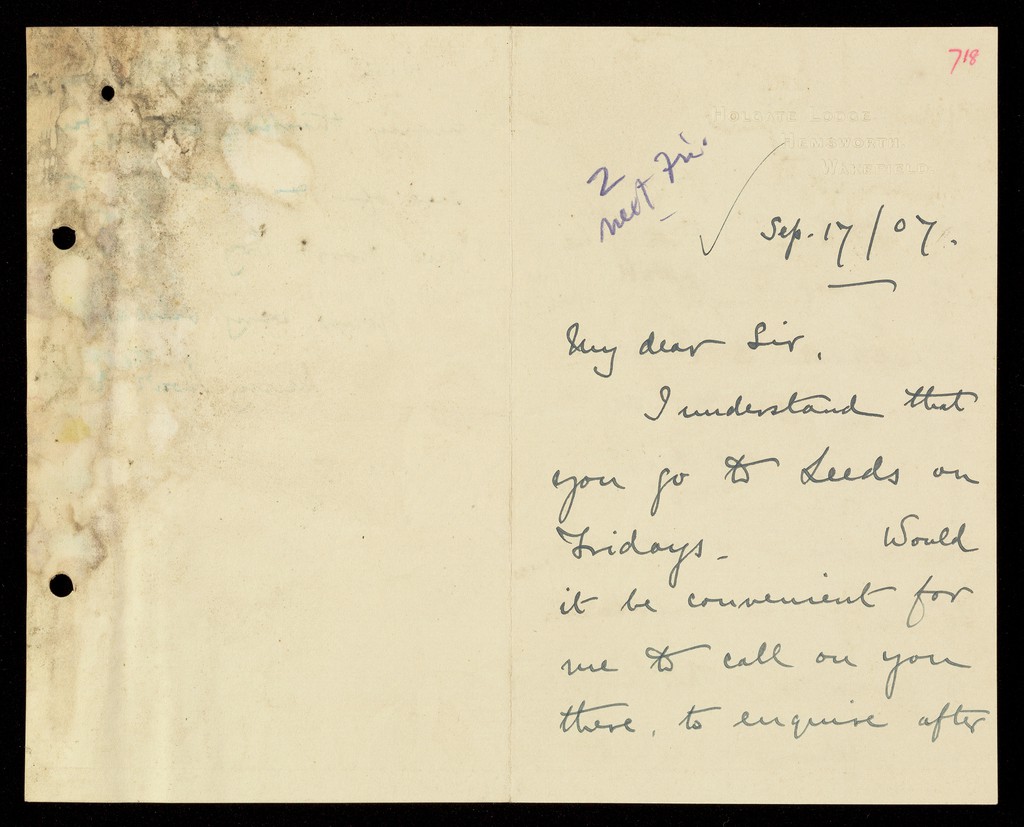 718
HOLGATE LODGE
HEMSWORTH
WAKEFIELD.
2
next Fri.
Sep. 17/07.
My dear Sir,
I understand that
you go to Leeds on
Fridays - Would
it be convenient for
me to call on you
there, to enquire after